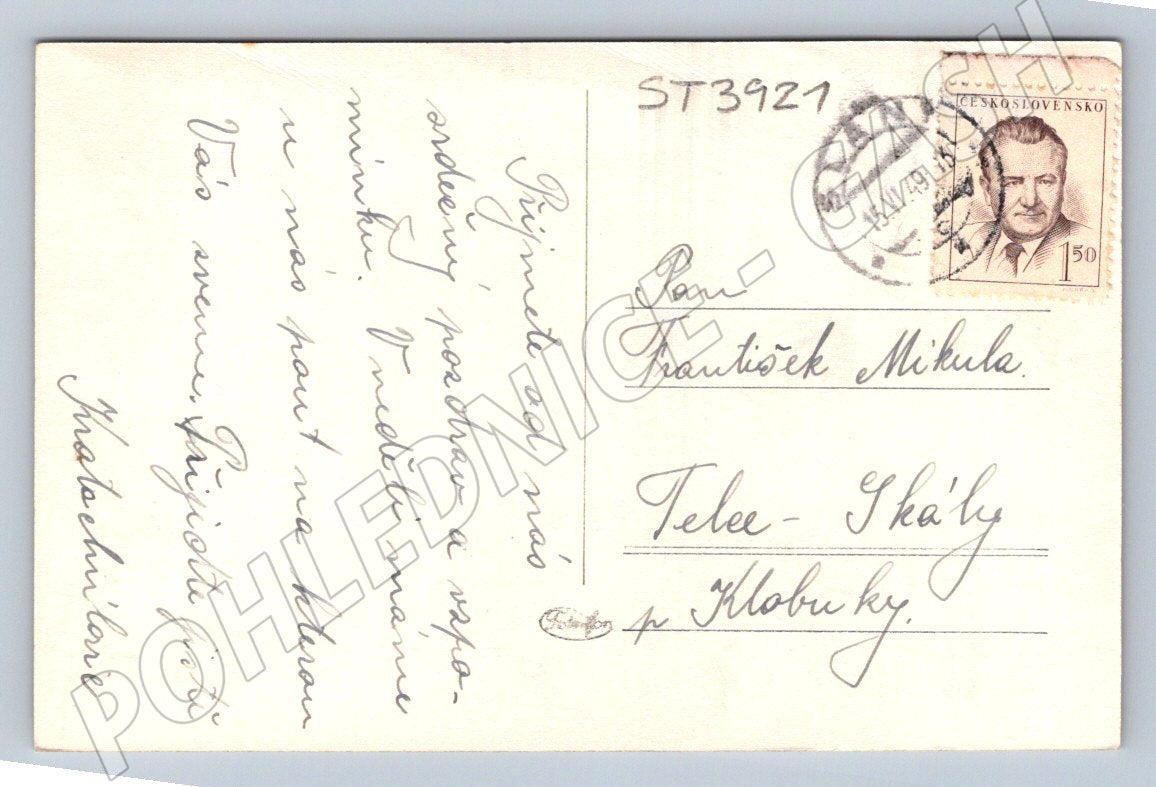 ST3921
ČESKOSLOVENSKO
1 50
SLANÝ
Přijměte od nás
srdečný pozdrav a vzpo-
mínku. V neděli máme
u nás pouť na kterou
Vás zveme. Přijeďte jistě
Kratochvílovi
Pan
František Mikula.
Telce - Skály
p Klobuky.
POHLEDNICE - CZ/SCH